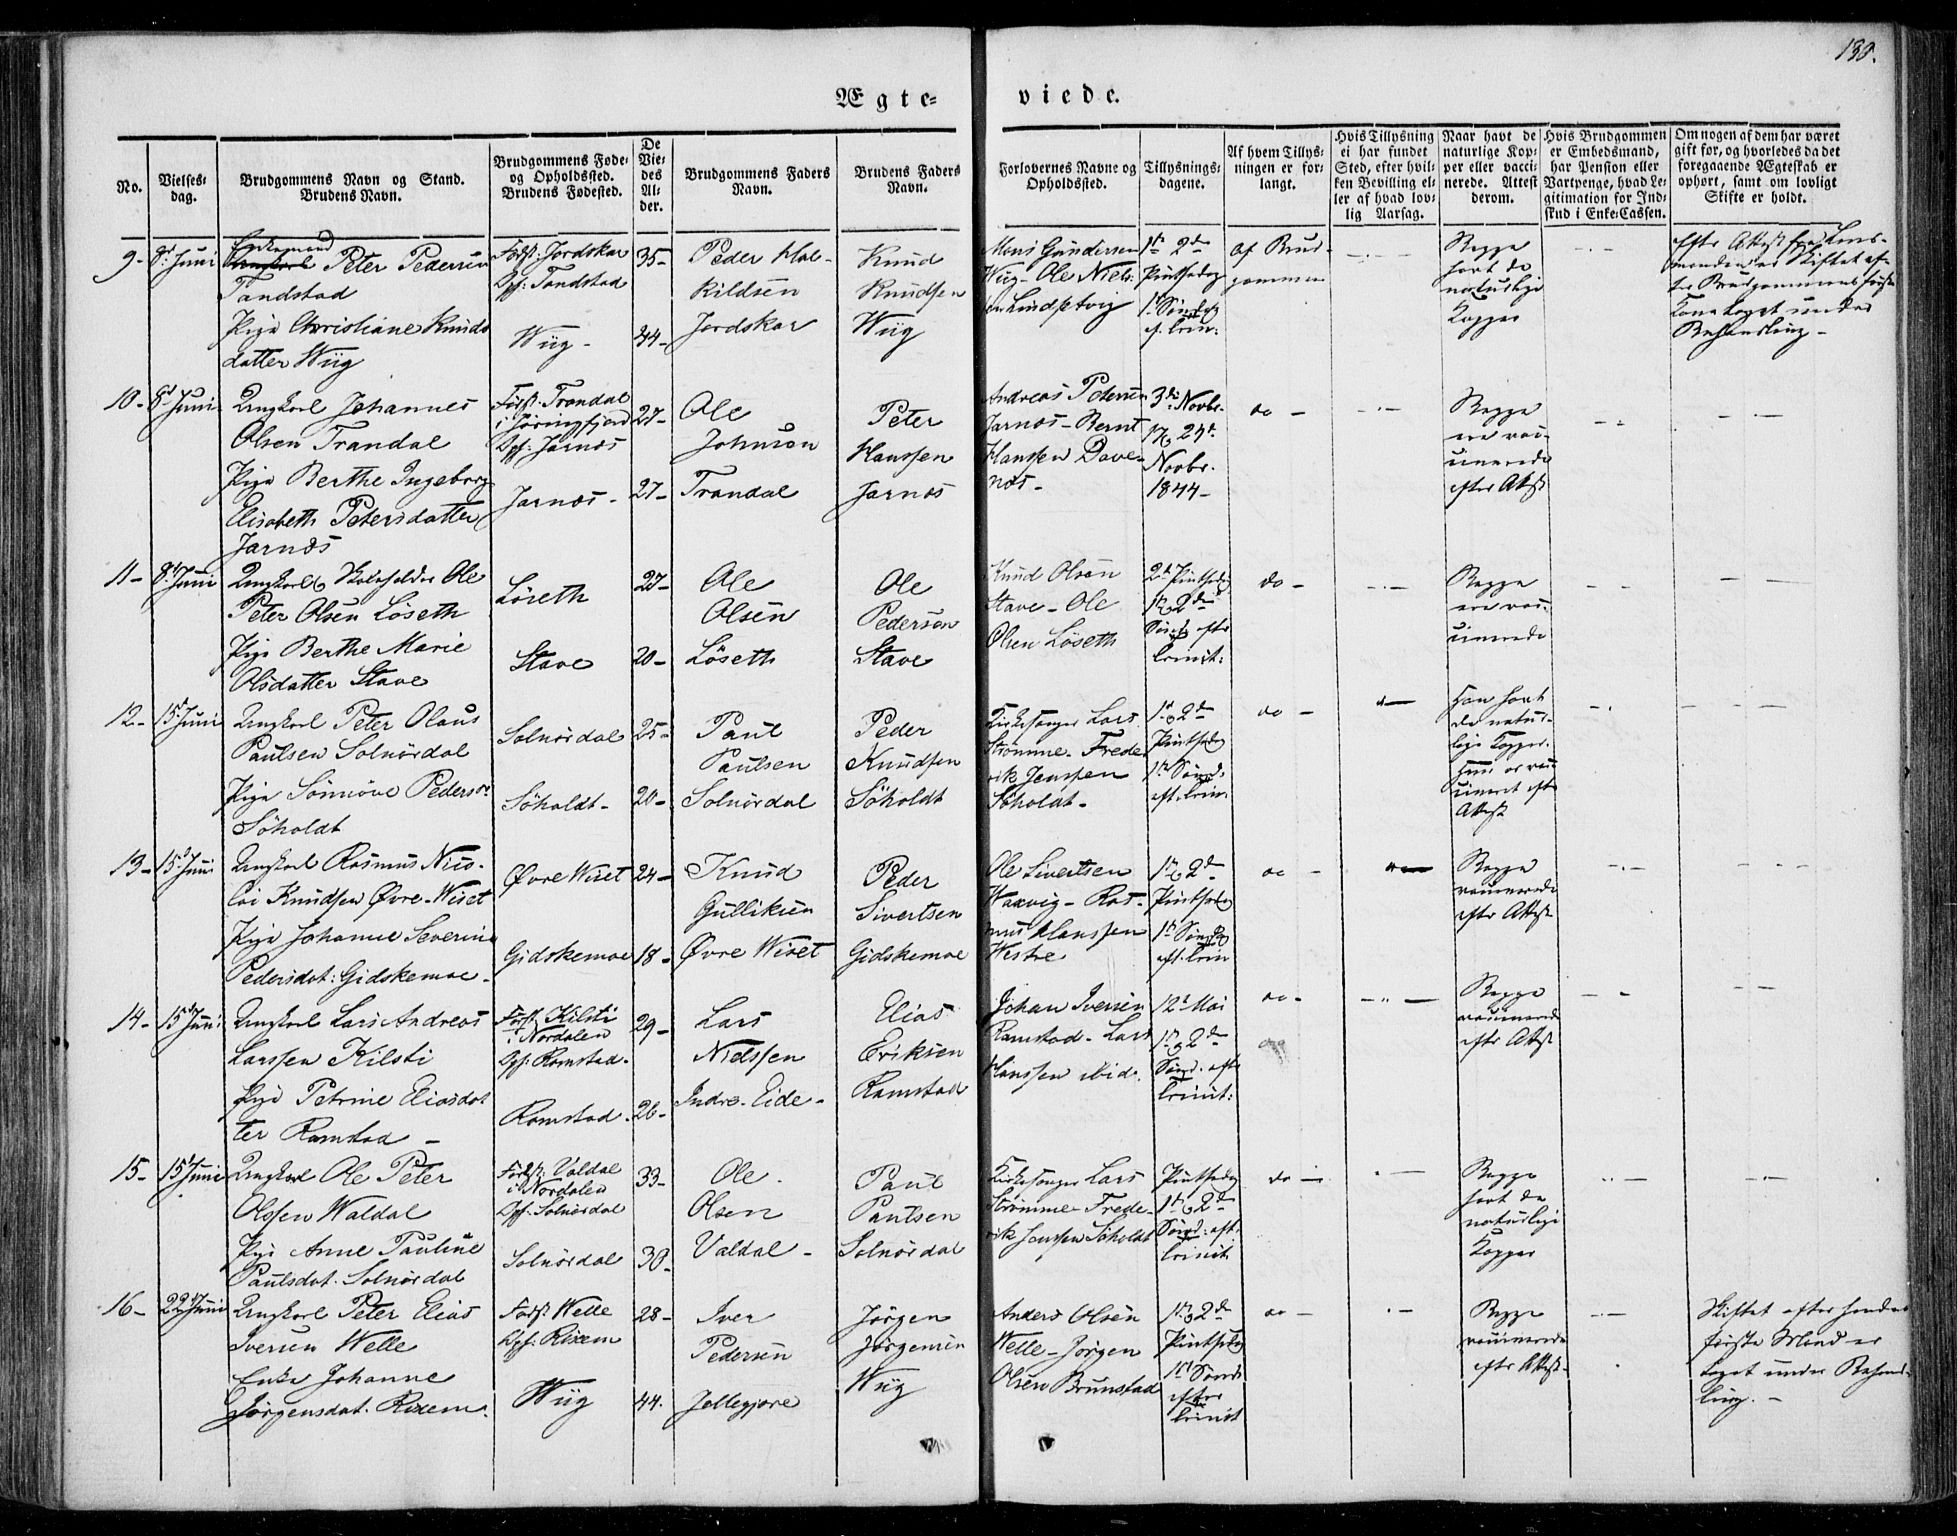 188.
Ægte-
viede.
No.
Vielses-
dag.
Brudgommens Navn og Stand.
Brudens Navn.
Brudgommens Føde-
og Opholdssted.
Brudens Fødested.
De
Vie-
des
Al-
der.
Brudgommens Faders
Navn.
Brudens Faders
Navn.
Forlovernes Navne og
Opholdssted.
Tillysnings-
dagene.
Af hvem Tillys-
ningen er for-
langt.
Hvis Tillysning
ei har fundet
Sted, efter hvil-
ken Bevilling el-
ler af hvad lov-
lig Aarsag.
Naar havt de
naturlige Kop-
per eller vacci-
nerede. Attest
derom.
Hvis Brudgommen
er Embedsmand,
har Pension eller
Vartpenge, hvad Le-
gitimation for Ind-
skud i Enke-Cassen.
Om nogen af dem har været
gift før, og hvorledes da det
foregaaende Ægteskab er
ophørt, samt om lovligt
Skifte er holdt.
9- 8d Juni
Enkemand
Ungkarl Peter Pedersen
Tandstad
Pige Christiane Knuds
datter Wiig
Fødst: Jordskar
Opf: Tandstad
Wiig -
35-
44-
Peder Hal-
kildsen
Jordskar
Knud
Knudsen
Wiig
Mons Gundersen
Wiig - Ole Niels-
sen Lindsetvig
1ste 2den
Pintsedag
1st Søndag
ef. Trin:
af Brud-
gommen
Begge
havt de
naturlige
Kopper
efter Attest fra Lens-
manden er Skiftet ef-
ter Brudgommens første
Kone taget under
Behandling -
10- 8d Juni
Ungkarl Johannes
Olsen Trandal
Pige Berthe Ingeborg
Elisabeth Petersdatter
Jarnæs
Fødst: Trandal
i Jøringfjord
Opf: Jarnæs
Jarnæs -
27-
27-
Ole
Johnson
Trandal
Peter
Hanssen
Jarnæs
Andreas Petersen
Jarnæs - Bernt
Hanssen Dave-
næs -
3die Novbr.
17, 24de
Novbr.
1844-
do -
Begge
ere vac-
cinerede
efter Attest
11- 8d Juni
Ungkarl Skoleholder Ole
Peter Olsen Løseth
Pige Berthe Marie
Olsdatter Stave
Løseth
Stave
27-
20-
Ole
Olsen
Løseth
Ole
Pedersen
Stave
Knud Olsen
Stave - Ole
Olsen Løseth
2d Pintsedag
1ste 2den
Sønd. efter
Trinit:
do -
Begge
ere vac-
cinerede
12- 15d Juni
Ungkarl Peter Olaus
Paulsen Solnørdal
Pige Sønnøve Pedersd.
Søholdt
Solnørdal
Søholdt -
25-
20-
Paul
Paulsen
Solnørdal
Peder
Knudsen
Søholdt
Kirkesanger Lars
Strømme - Frede-
rik Jenssen
Søholdt -
1st 2den
Pintsedag
1ste Sønd:
eft. Trin:
do -
Han havt
de natur-
lige Kopper.
Hun er vac-
cineret efter
Attest
13- 15d Juni
Ungkarl Rasmus Nico-
lai Knudsen Øvre-Wiset
Pige Johanne Severine
Pedersdat: Gidskemoe -
Øvre Wiset
Gidskemoe
24-
18-
Knud
Gulliksen
Øvre Wiset
Peder
Sivertsen
Gidskemoe
Ole Sivertsen
Waxvig - Ras-
mus Hanssen
Westre
1ste 2den
Pintsedag
1ste Søndag
eft. Trin
do -
Begge
vaccinerede
efter Attest
14- 15d Juni
Ungkarl Lars Andreas
Larssen Kilsti
Pige Petrine Eliasdat-
ter Ramstad -
Fødst: Kilsti
i Nordalen
Opf: Ramstad.
Ramstad.
29-
26-
Lars
Nielssen
Indre-Eide-
Elias
Eriksen
Ramstad
Johan Iversen
Ramstad - Lars
Hanssen ibid.
12te Mai
1ste 2den
Sønd. efter
Trinit:
do -
Begge
vaccinerede
efter Attest
15- 15d Juni
Ungkarl Ole Peter
Olssen Waldal
Pige Anne Pauline
Paulsdat. Solnørdal
Fødst: Valdal
i Nordalen
Opf: Solnørdal
Solnørdal
33-
30-
Ole
Olsen
Valdal -
Paul
Paulsen
Solnørdal
Kirkesanger Lars
Strømme - Frede-
rik Jenssen Søholdt
Pintsedag
1ste 2den
Sønd. eft.
Trinit
do -
Begge
havt de
naturlige
Kopper
16- 22d Juni
Ungkarl Peter Elias
Iversen Welle
Enke Johanne
Jørgensdat. Rixem.
Fødst: Welle
Opf: Rixem
Wiig
28-
44.
Iver
Pedersen
Jellegjøre
Jørgen
Jørgensen
Wiig
Anders Olsen
Welle - Jørgen
Olsen Brunstad
1ste 2den
Pintsedag
1st Sønd:
efter
Trinit
do -
Begge
vaccinerede
efter Attest
Skiftet efter hendes
første Mand er
taget under Behand-
ling. -